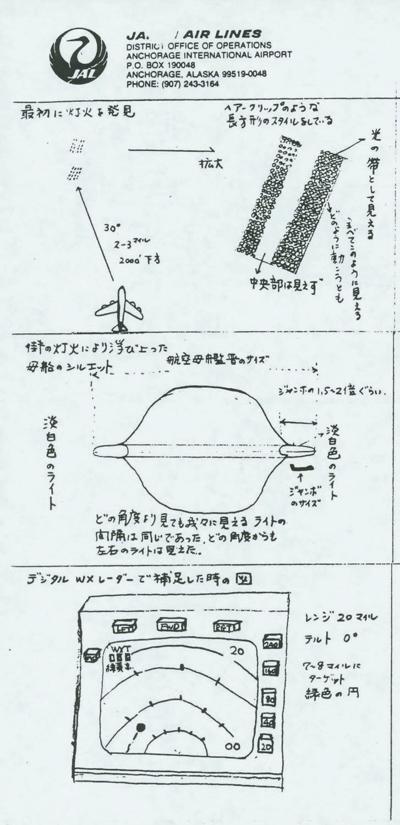 JAL
JA. / AIR LINES
DISTRICT OFFICE OF OPERATIONS
ANCHORAGE INTERNATIONAL AIRPORT
P.O. BOX 190048
ANCHORAGE, ALASKA 99519-0048
PHONE: (907) 243-3164
最初に灯火を発見
ヘアークリップのような
長方形のスタイルをしている
拡大
光の帯として見える
30°
2-3マイル
2000' 下方
どのように動こうとも
すべてこのように見える
中央部は見えず
灯火により浮び上った
母船のシルエット
航空母艦
のサイズ
ジャンボの1.5〜2倍ぐらい.
淡白色のライト
淡白色のライト
ジャンボ
のサイズ
どの角度より見ても我々に見えるライトの
間隔は同じであった。どの角度からも
左右のライトは見えた。
デジタル WXレーダーで補足した時の図
レンジ 20マイル
チルト 0°
7〜8マイルに
ターゲット
緑色の円
WYT
20
00
20